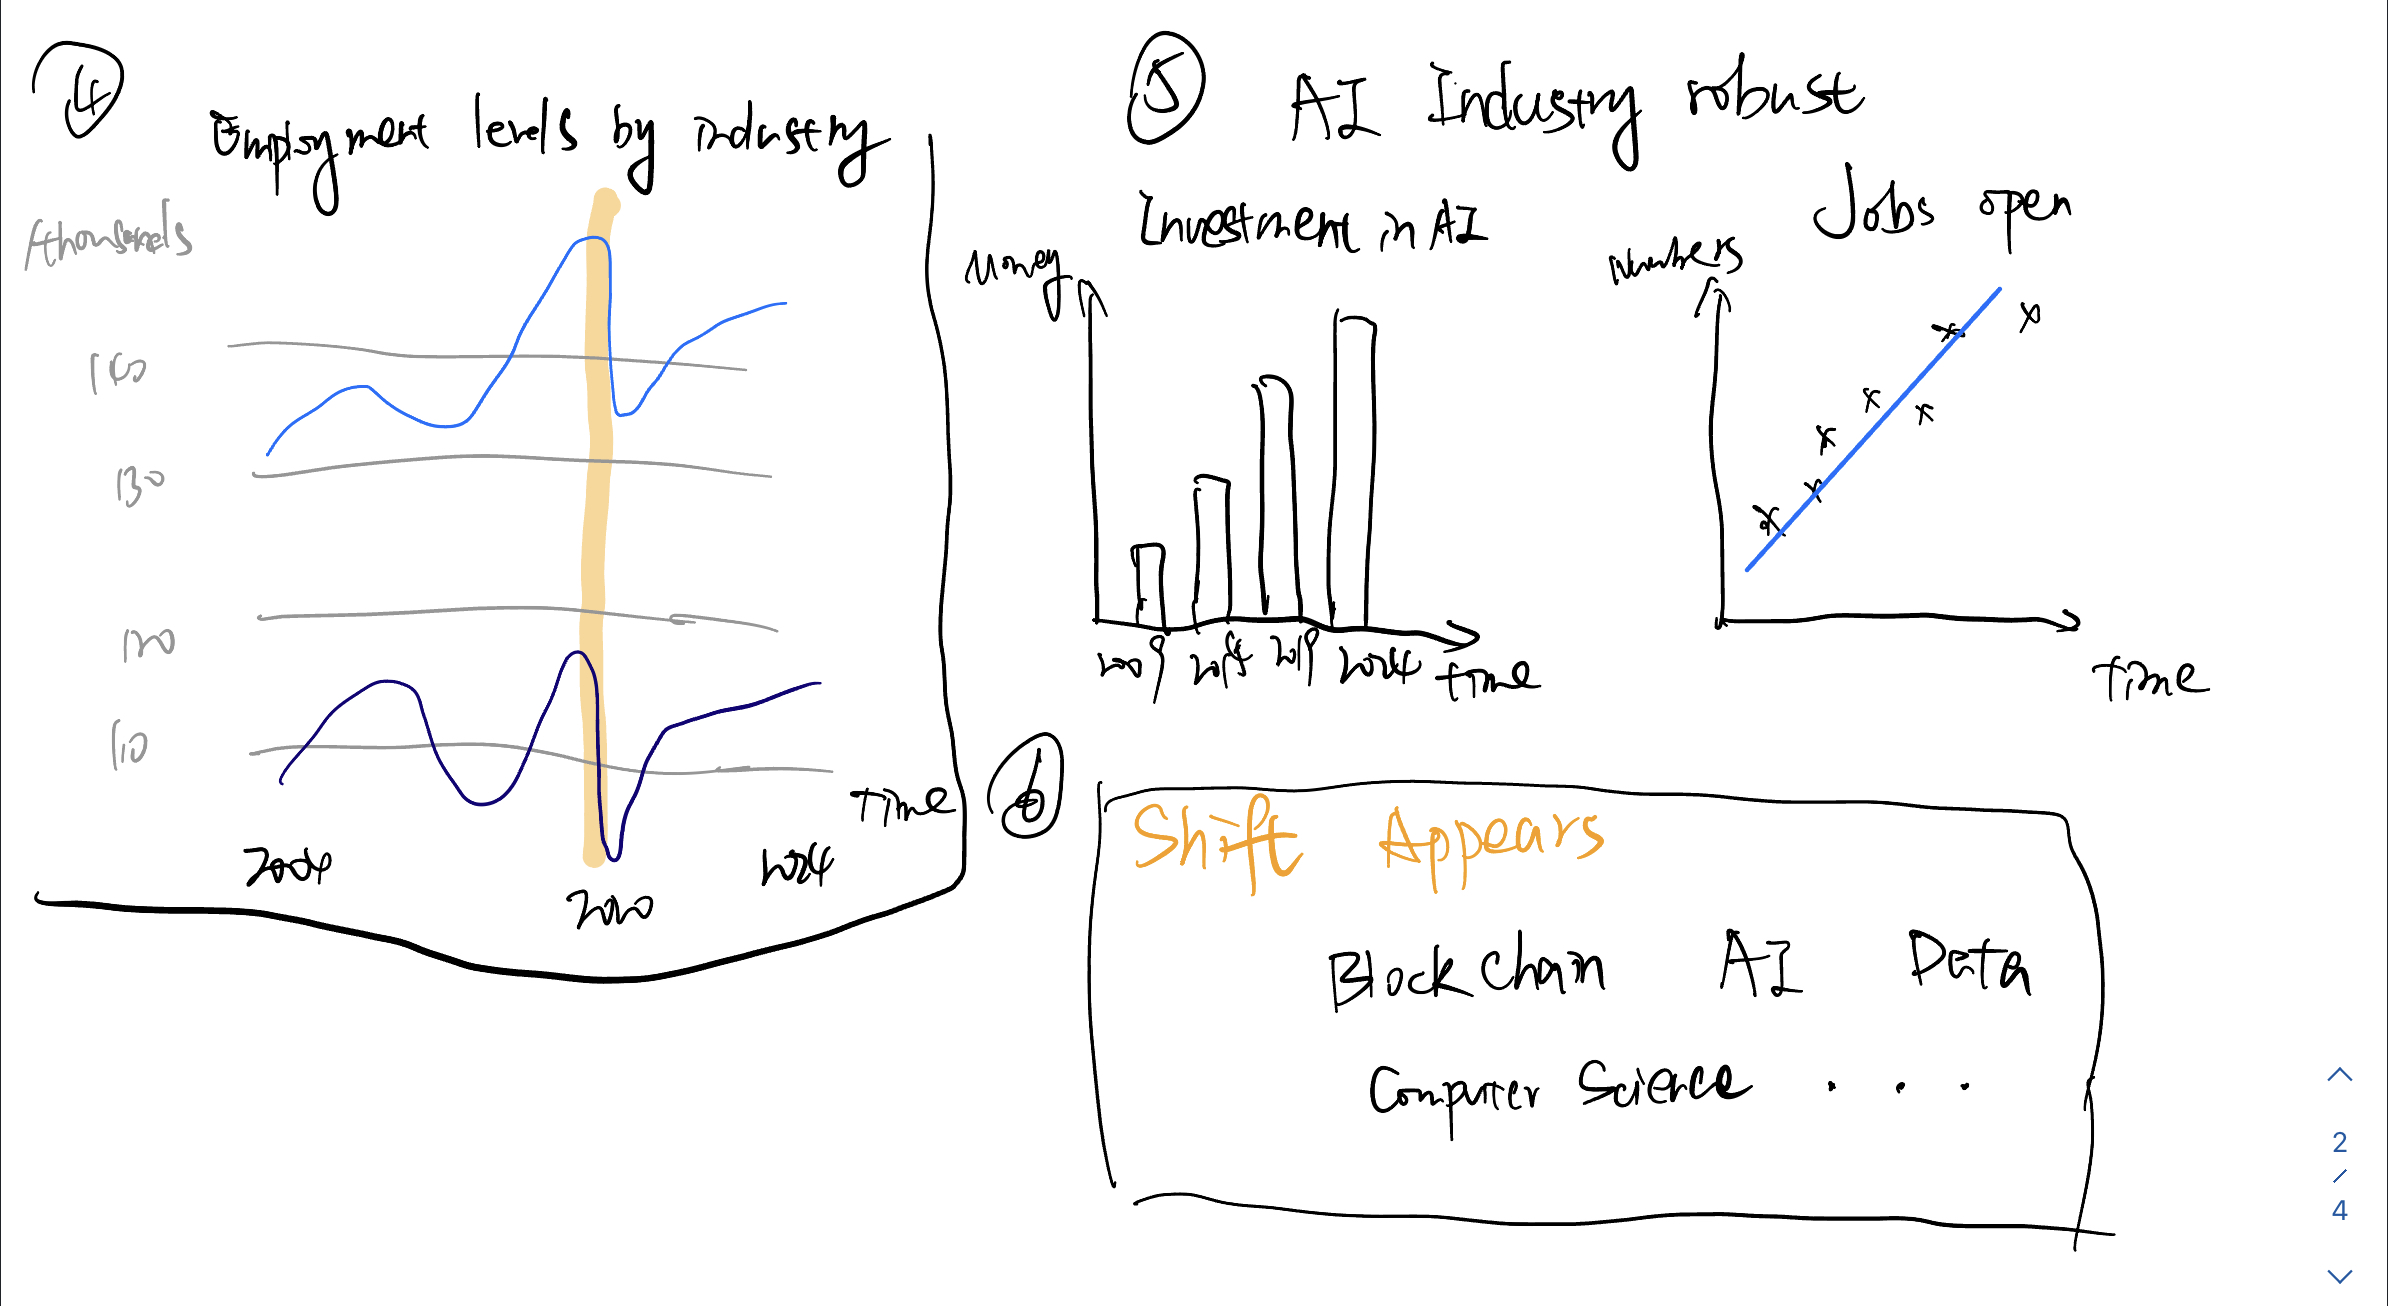 4
Employment levels by industry
160
130
120
110
Time
2004
2020
2024
5
AI Industry robust
Investment in AI
Money
2009 2014 2019 2024 time
Jobs open
Numbers
Time
6
Shift Appears
Blockchain AI Data
Computer Science . . .
2
/
4